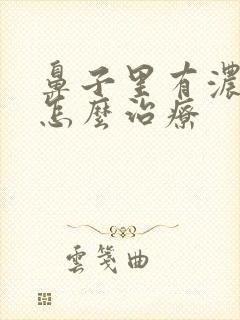 鼻子里有濃
怎麼治療
雲箋曲